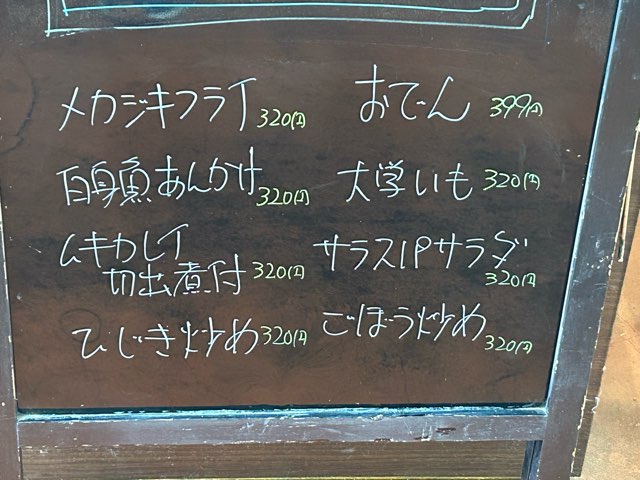 メカジキフライ 320円
白身魚あんかけ 320円
ムキカレイ
切出煮付 320円
ひじき炒め 320円
おでん 399円
大学いも 320円
サラスパサラダ
320円
ごぼう炒め 320円